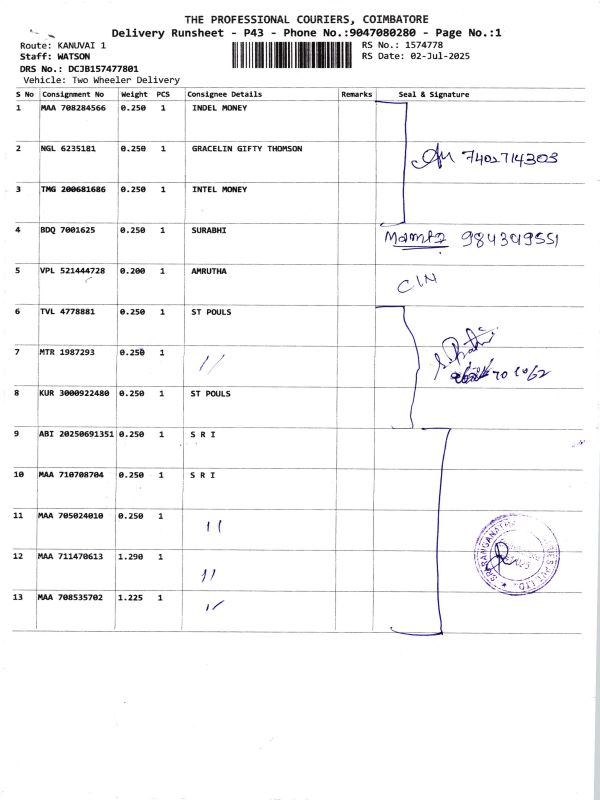 THE PROFESSIONAL COURIERS, COIMBATORE
Delivery Runsheet - P43 - Phone No.:9047080280 - Page No.:1
Route: KANUVAI 1 RS No.: 1574778
Staff: WATSON RS Date: 02-Jul-2025
DRS No.: DCJB157477801
Vehicle: Two Wheeler Delivery
S No Consignment No Weight PCS Consignee Details Remarks Seal & Signature
1 MAA 708284566 0.250 1 INDEL MONEY
2 NGL 6235181 0.250 1 GRACELIN GIFTY THOMSON 7402714303
3 TMG 200681686 0.250 1 INTEL MONEY
4 BDQ 7001625 0.250 1 SURABHI Mamta 9843419551
5 VPL 521444728 0.200 1 AMRUTHA C/N
6 TVL 4778881 0.250 1 ST POULS
7 MTR 1987293 0.250 1 "
8 KUR 3000922480 0.250 1 ST POULS
9 ABI 20250691351 0.250 1 S R I
10 MAA 710708704 0.250 1 S R I
11 MAA 705024010 0.250 1 "
12 MAA 711470613 1.290 1 "
13 MAA 708535702 1.225 1 "